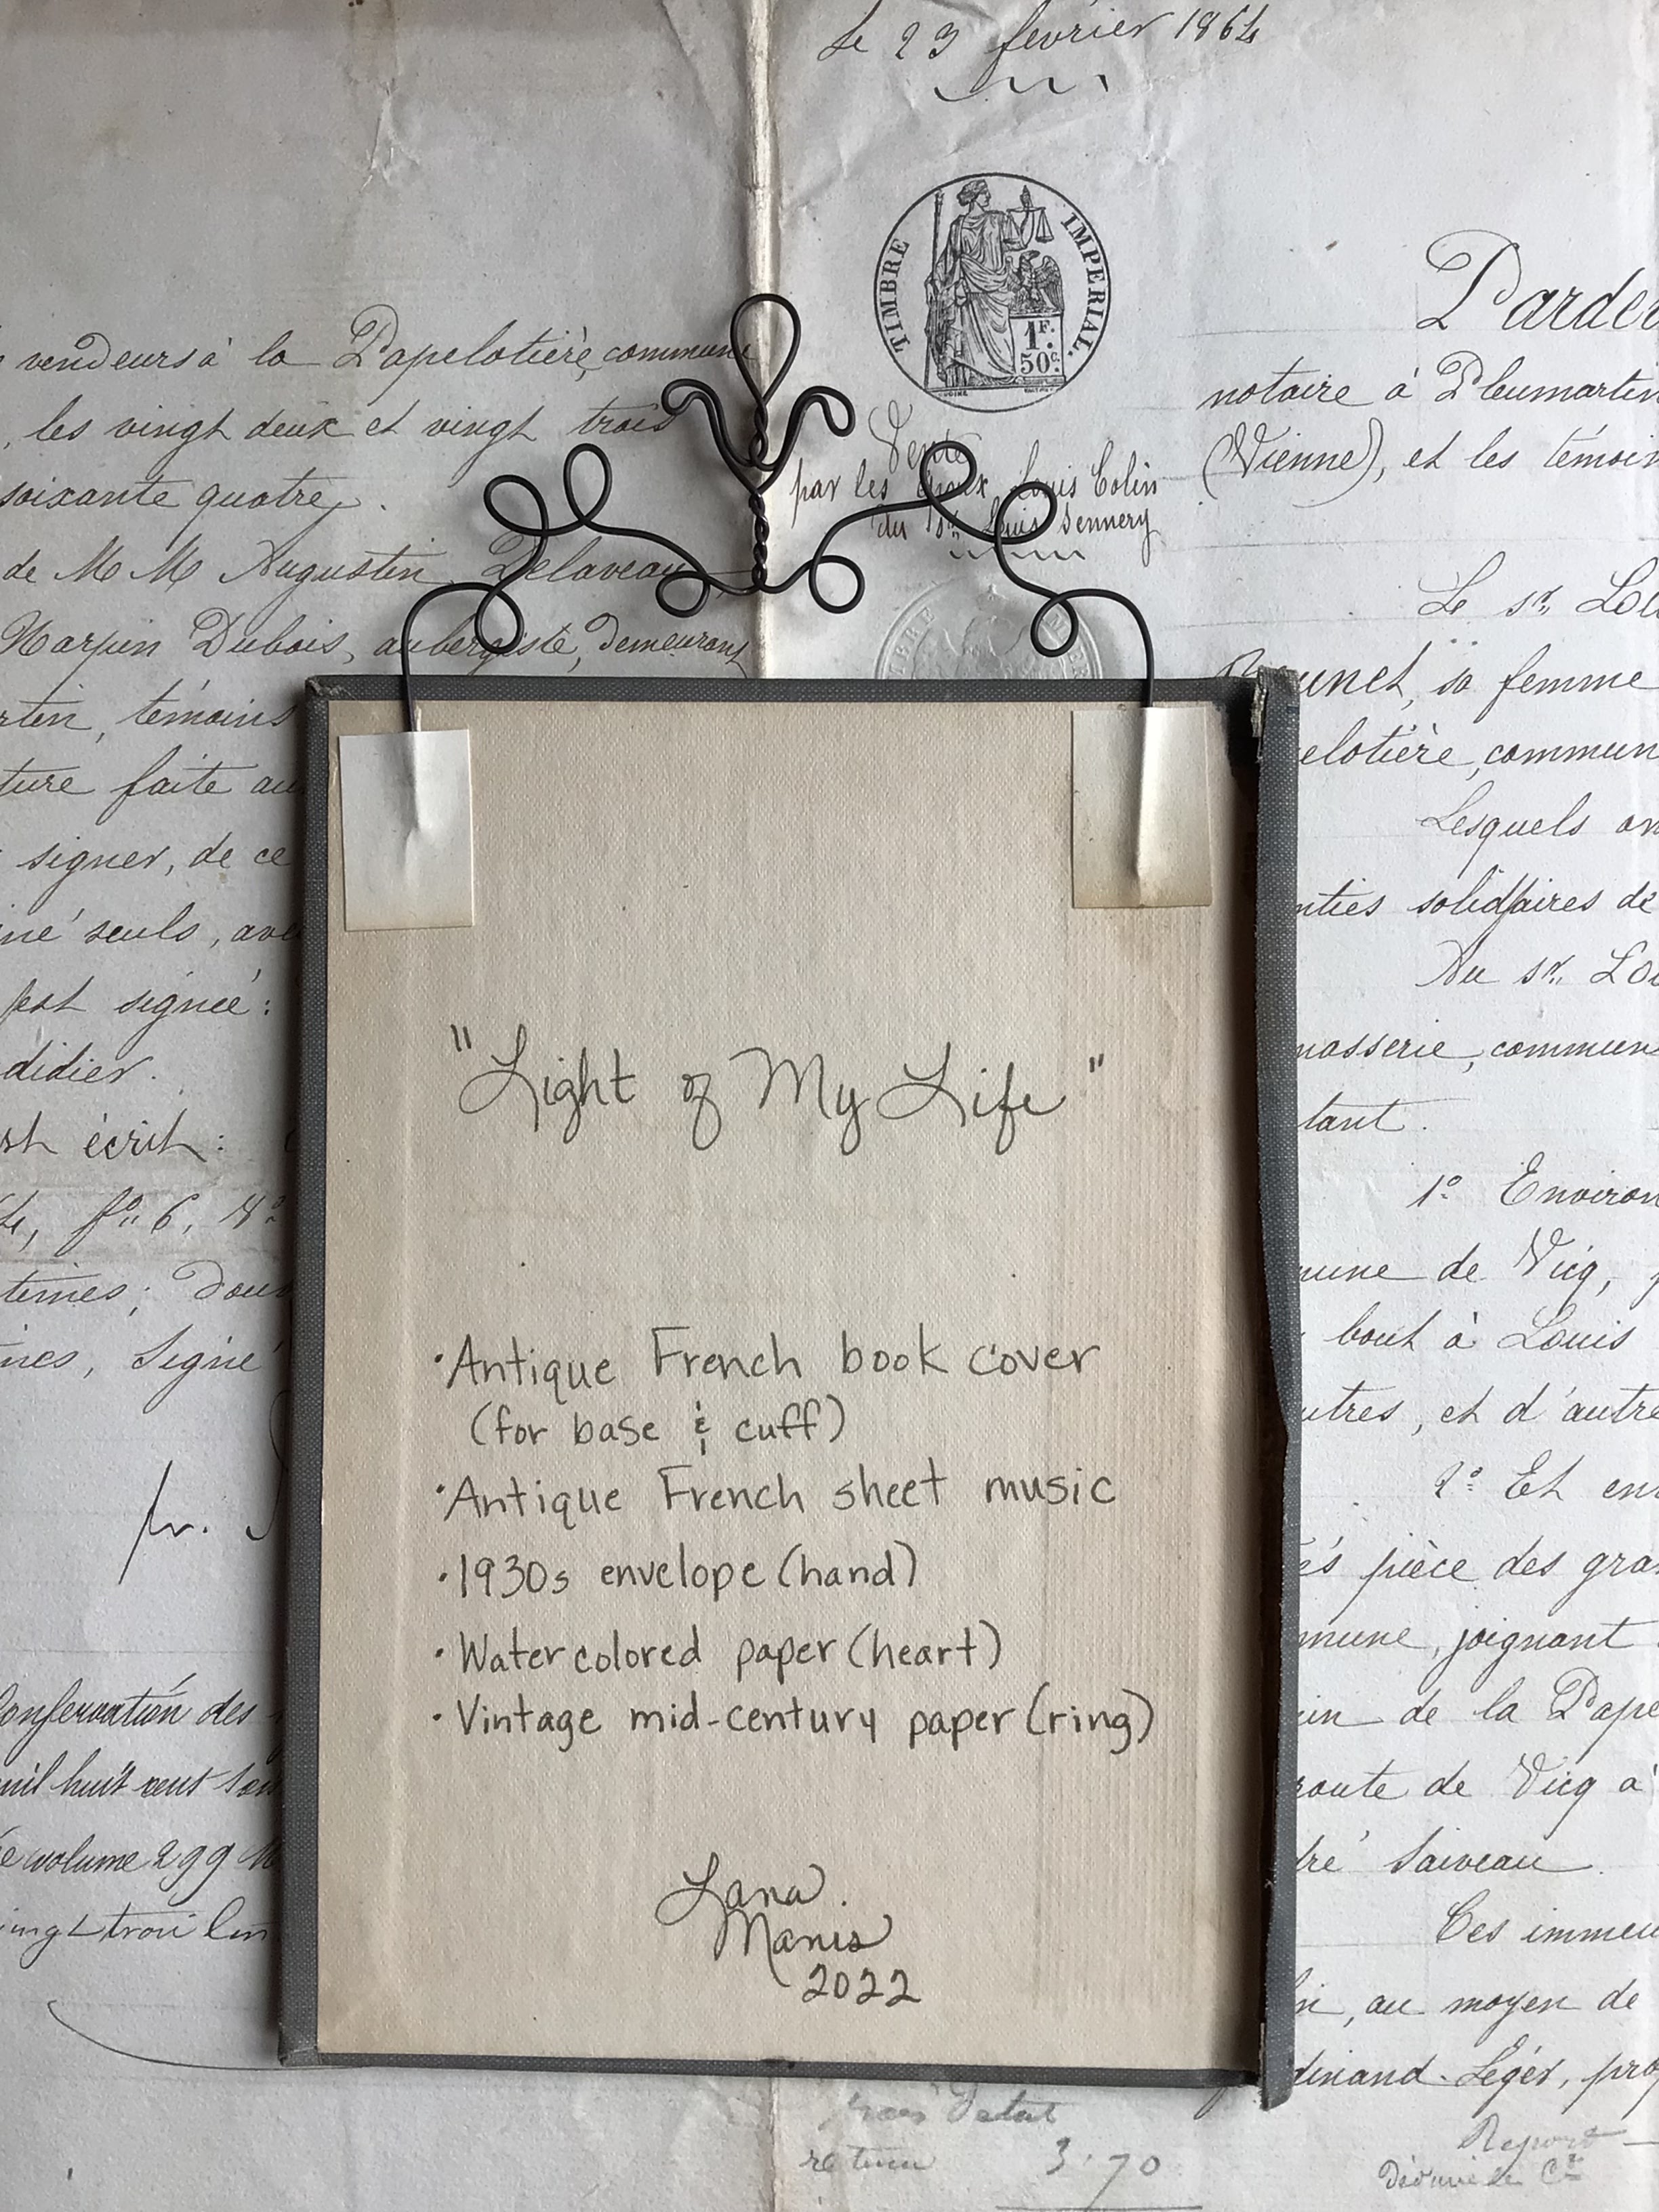 Le 23 février 1864
TIMBRE IMPERIAL.
1F.
50c.
Vente
par les époux Louis Colin
du Sr. Louis Dennery
vendeurs à la Papelotière, commune
, les vingt deux et vingt trois
soixante quatre.
de M M Augustin Delaveau
Marpin Dubois, aubergiste, demeurant
témoins
ture faite au
signer, de ce
né seuls, avec
est signé:
didier.
écrit:
fo. 6,
Signé
pr.
Conservation des
mil huit cent
volume 299
vingt trois
Parder
notaire à Pleumartin
(Vienne), et les témoin
Le sr. Lou
Brunet, sa femme
pelotière, commun
Lesquels on
nties solidaires de
Au sr. Lou
nasserie, commun
tant.
1o. Environ
mune de Vicq,
bout à Louis
utres, et d'autre
2o. Et env
és pièce des gra
mune, joignant
in de la Pape
route de Vicq à
dré Saiveau.
Ces immeu
in, au moyen de
dinand Léger, prop
"Light of My Life"
· Antique French book cover
(for base & cuff)
· Antique French sheet music
· 1930s envelope (hand)
· Watercolored paper (heart)
· Vintage mid-century paper (ring)
Lana
Manis
2022
3.70
Report